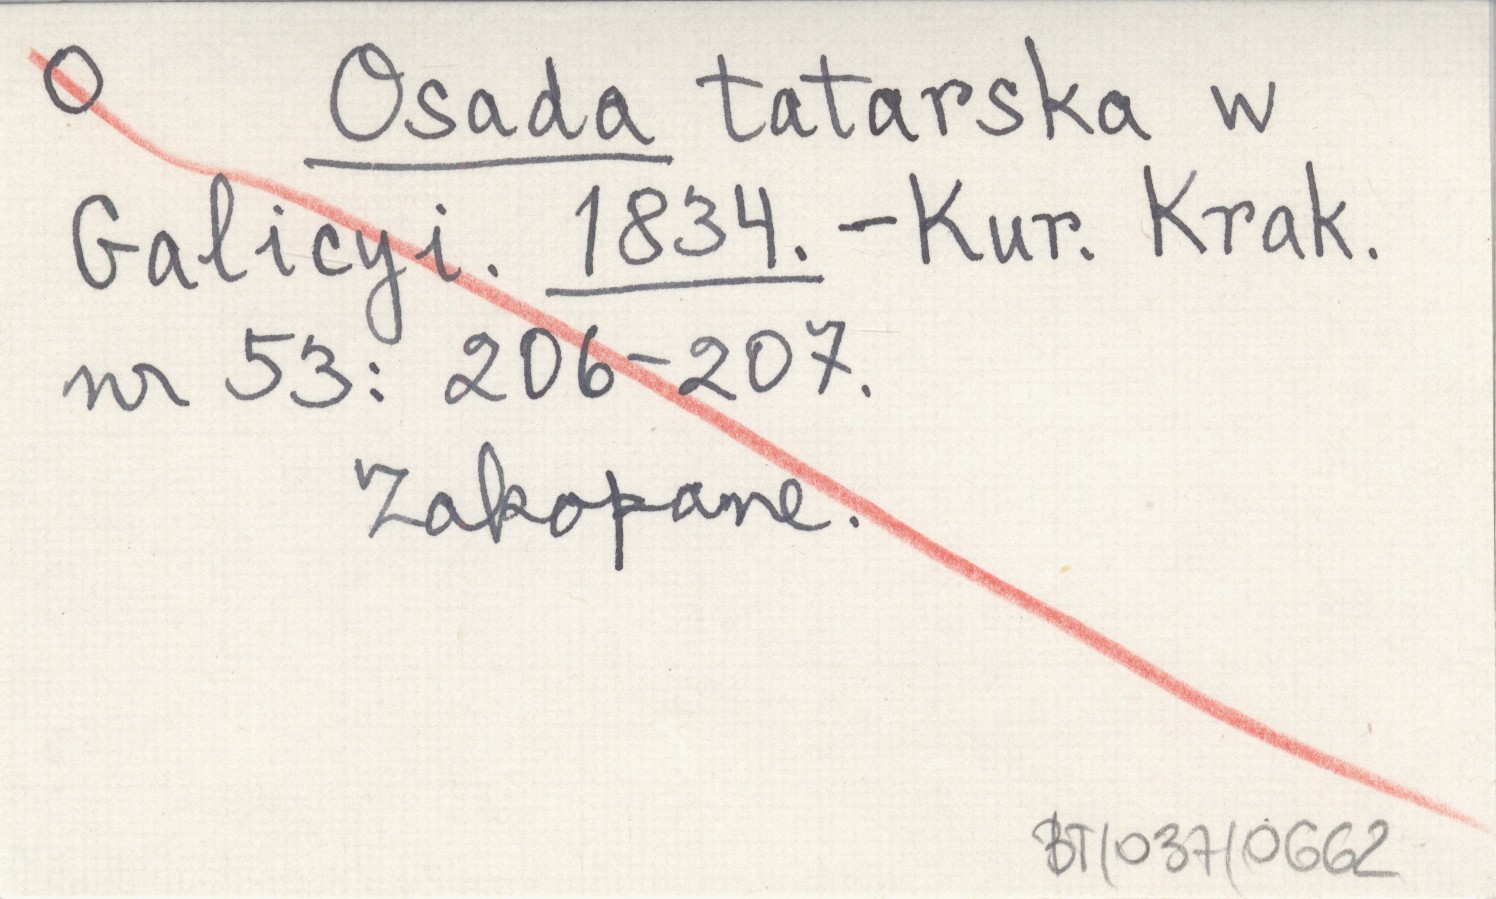 O Osada tatarska w
Galicyi. 1834. – Kur. Krak.
nr 53: 206–207.
Zakopane.
BT/037/0662